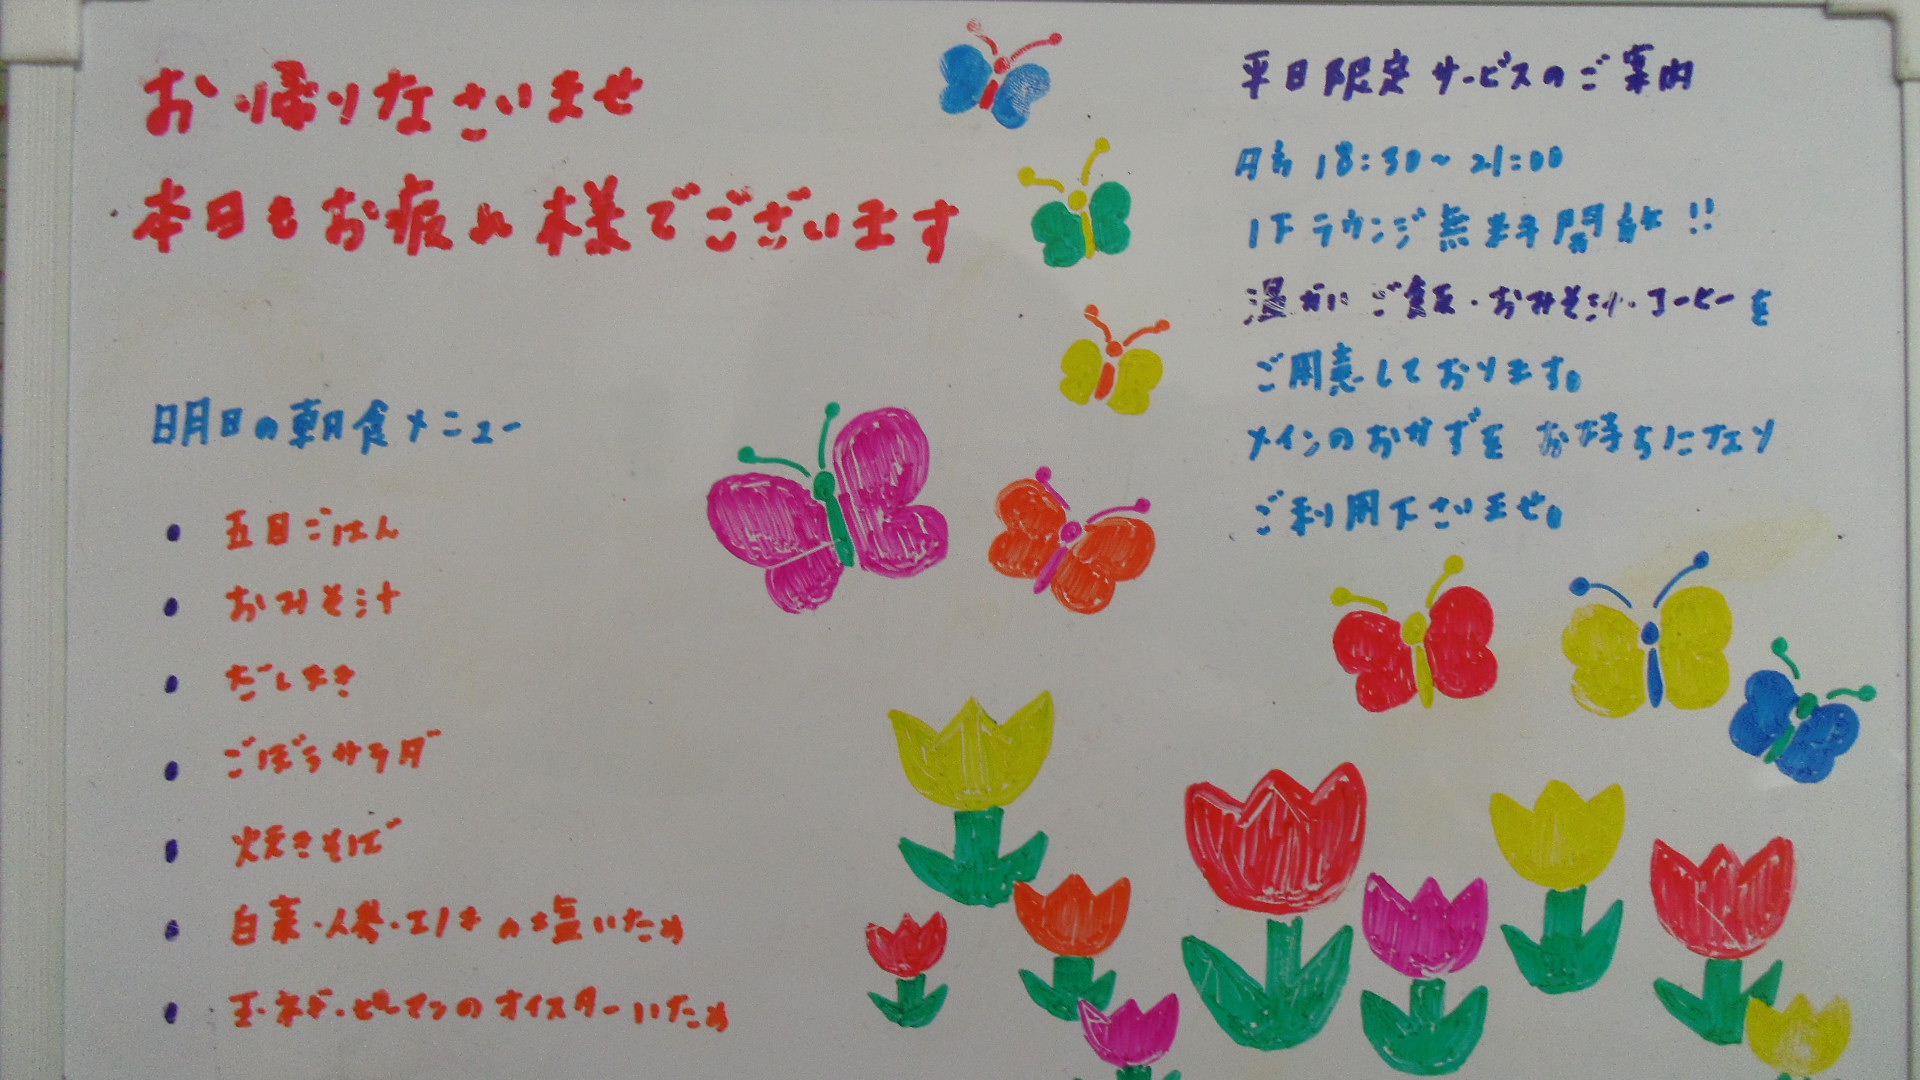 お帰りなさいませ
本日もお疲れ様でございます
明日の朝食メニュー
・五目ごはん
・おみそ汁
・だしまき
・ごぼうサラダ
・焼きそば
・白菜・人参・エノキの塩いため
・玉ネギ・ピーマンのオイスターいため
平日限定サービスのご案内
18:30~21:00
1Fラウンジ無料開放!!
温かいご飯・おみそ汁・コーヒーを
ご用意しております。
メインのおかずをお持ちになり
ご利用下さいませ。